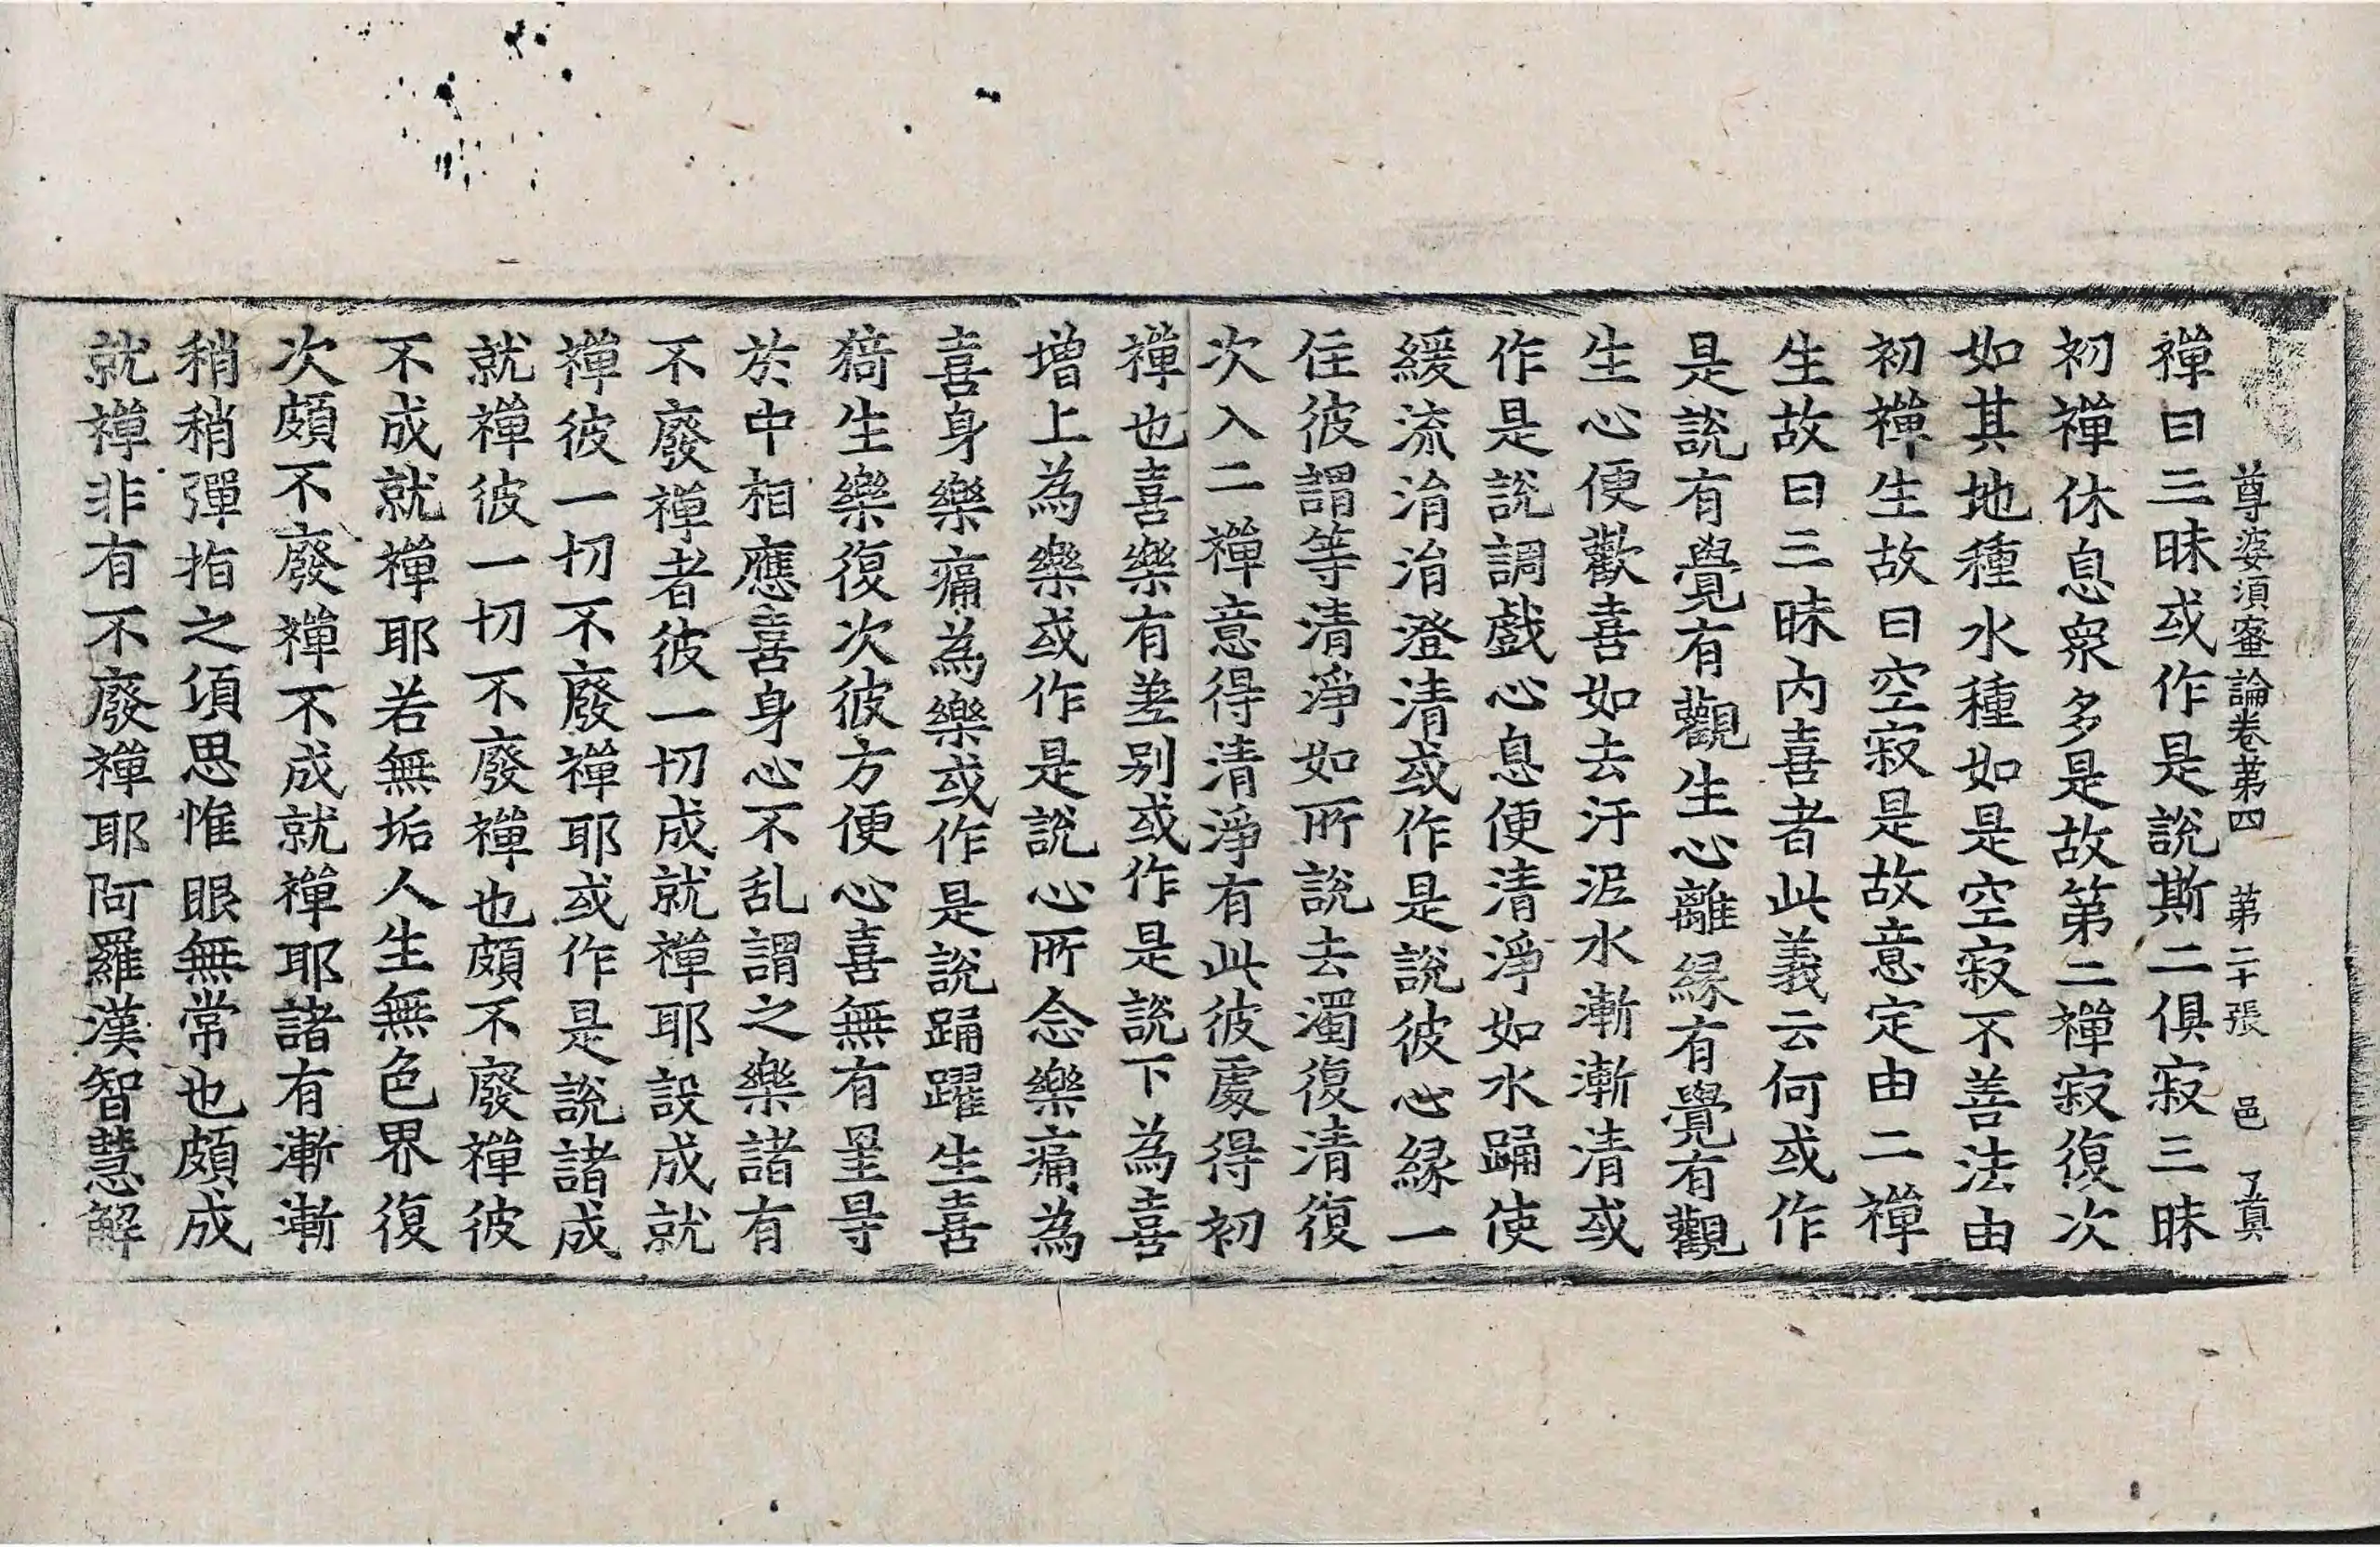 尊婆須蜜論卷苐四 苐二十張 邑 了真
禪曰三昧或作是說斯二俱寂三昧
初禪休息衆多是故第二禪寂復次
如其地種水種如是空寂不善法由
初禪生故曰空寂是故意定由二禪
生故曰三昧內喜者此義云何或作
是說有覺有觀生心離緣有覺有觀
生心便歡喜如去汙泥水漸漸清或
作是說調戲心息便清淨如水踊使
緩流淯淯澄清或作是說彼心緣一
住彼謂等清淨如所說去濁復清復
次入二禪意得清淨有此彼處得初
禪也喜樂有差别或作是說下為喜
增上為樂或作是說心所念樂痛為
喜身樂痛為樂或作是說踊躍生喜
猗生樂復次彼方便心喜無有罣㝵
於中相應喜身心不乱謂之樂諸有
不廢禪者彼一切成就禪耶設成就
禪彼一切不廢禪耶或作是說諸成
就禪彼一切不廢禪也頗不廢禪彼
不成就禪耶若無垢人生無色界復
次頗不廢禪不成就禪耶諸有漸漸
稍稍彈指之湏思惟眼無常也頗成
就禪非有不廢禪耶阿羅漢智慧解